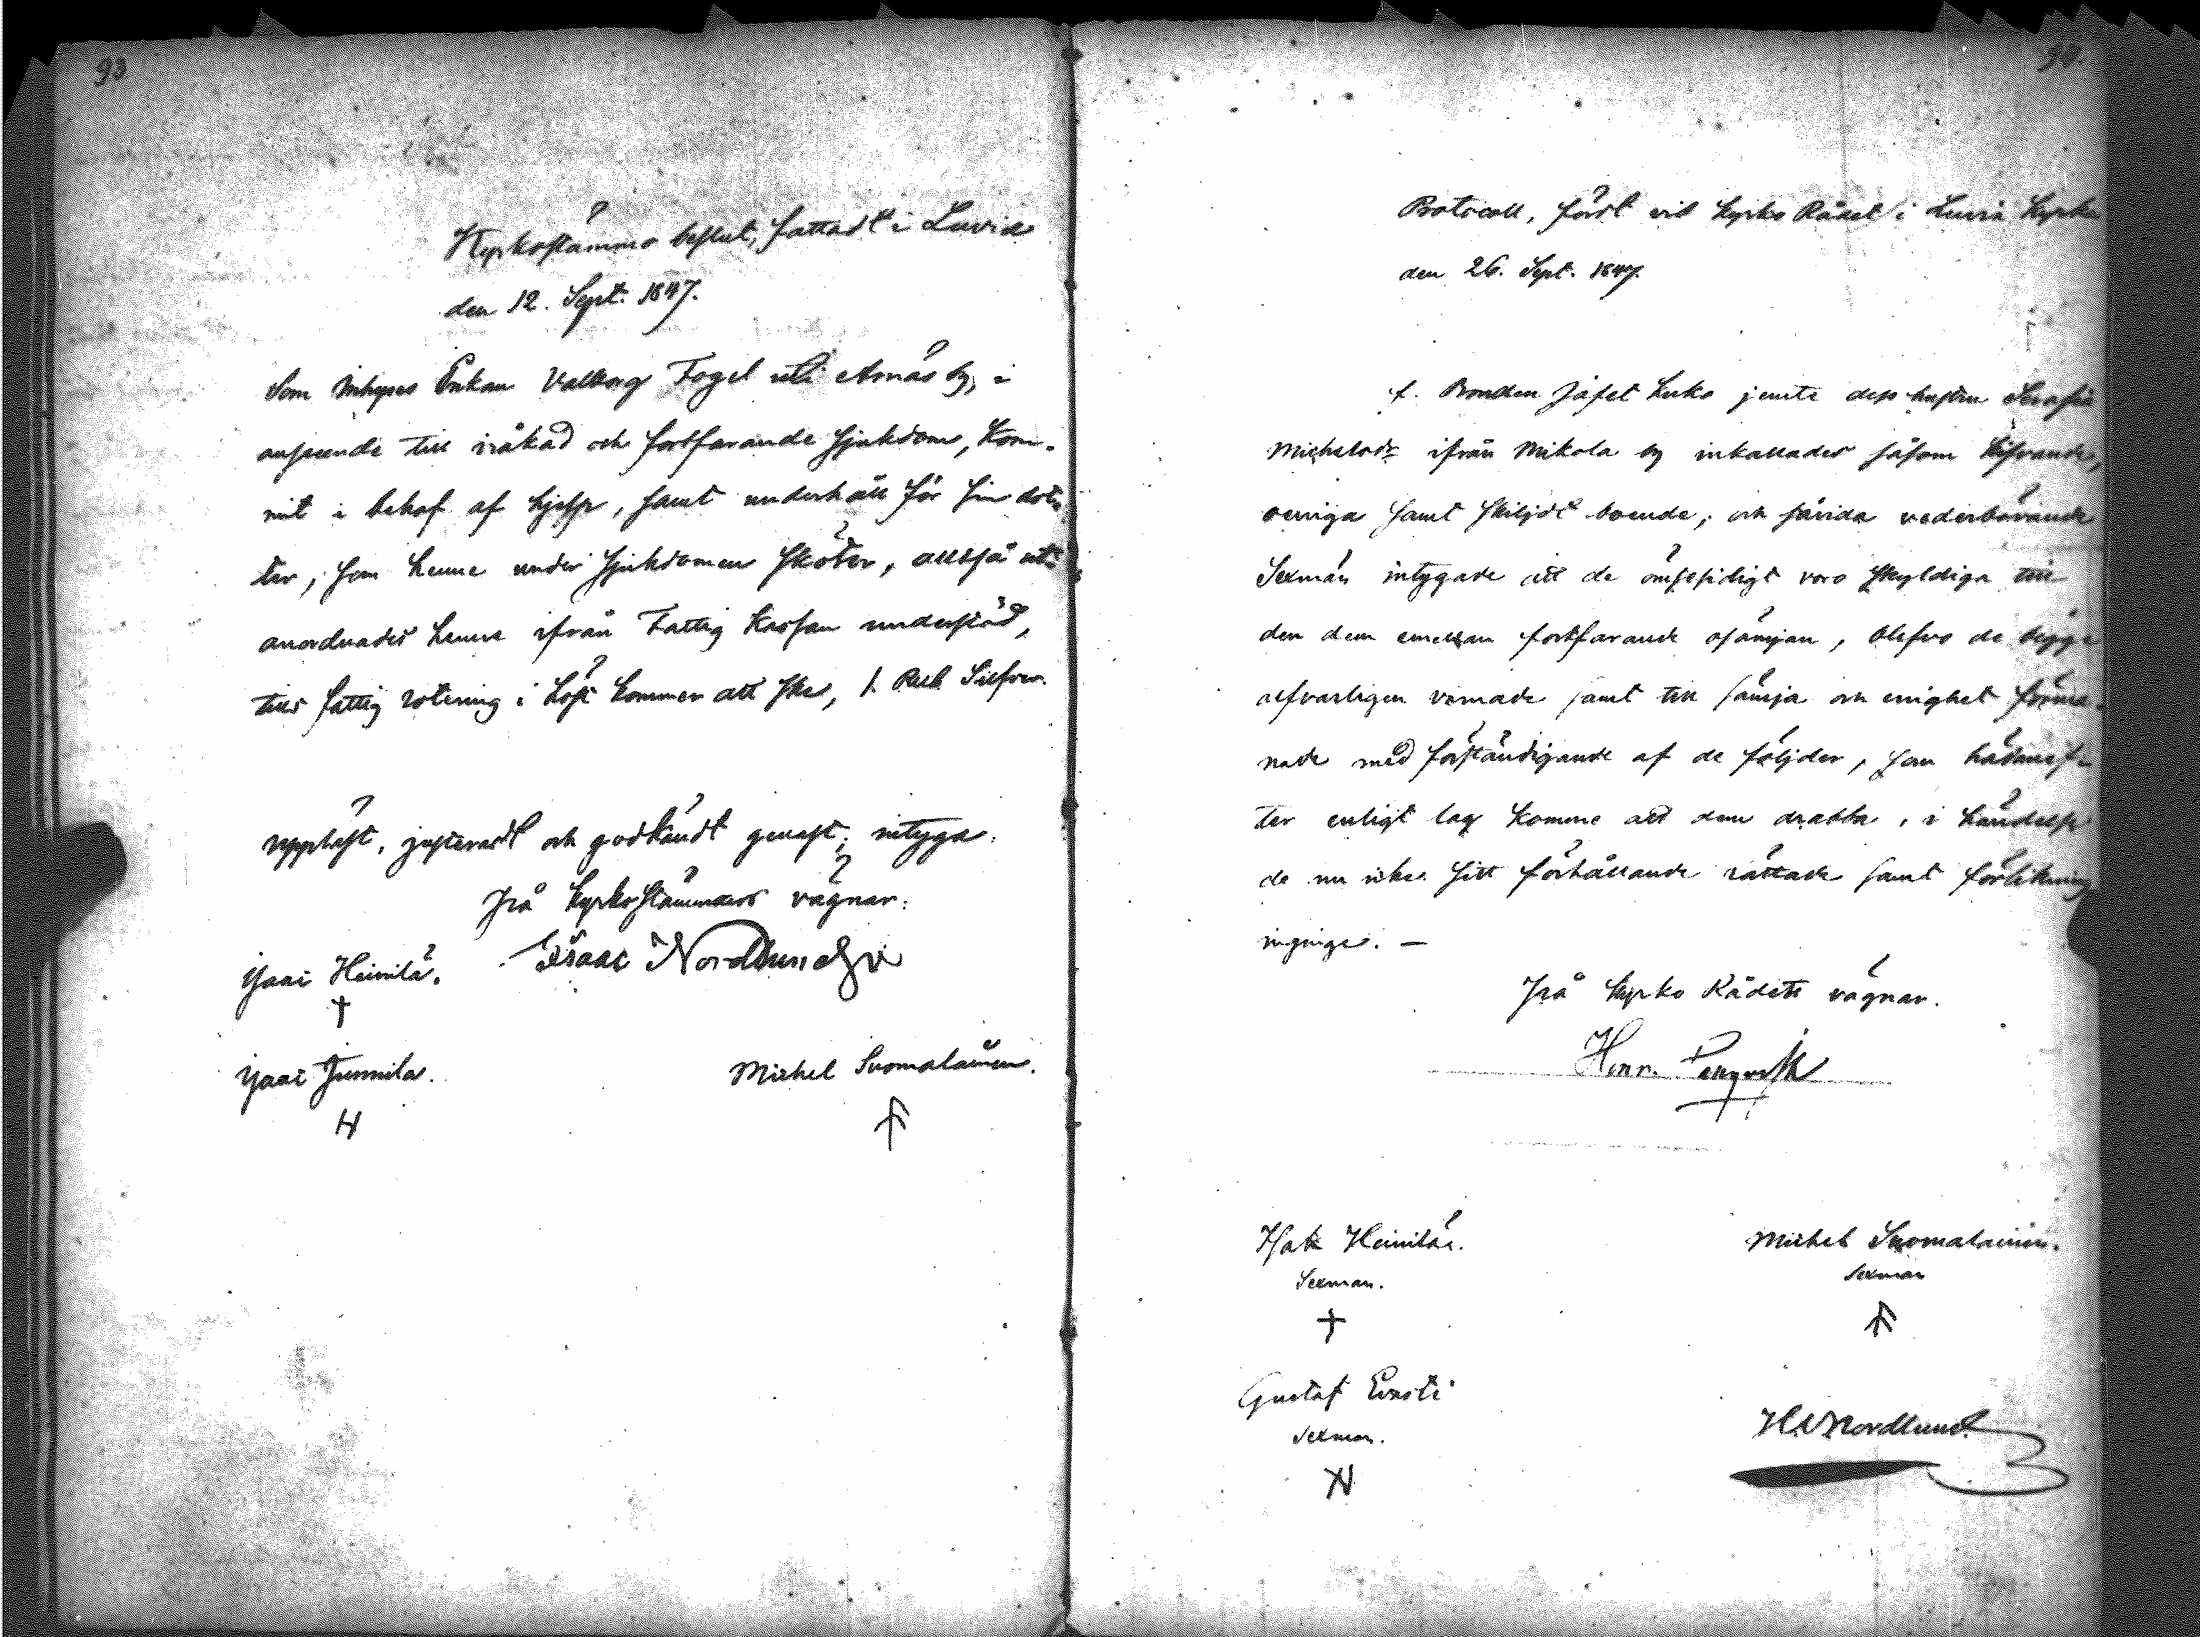 93
Kyrkostämmo beslut, fattadt i Luvia
den 12. Sept. 1847.
Som Inhyses Enkan Valborg Fogel uti Arnäs by, i
anseende till iråkad och fortfarande sjukdom, kom-
mit i behof af hjelp, samt underhåll för sin dot-
ter, som henne under sjukdomen sköter, alltså
anordnades henne ifrån Fattig Kassan understöd,
tills fattig rotering i höst kommer att ske, 1. Rub. Silfver.
uppläst, justeradt och godkändt genast; intyga.
På Kyrkostämmans vägnar:
Isaac Nordlund
Isaac Heinilä.
Isaac Junnila.
Michel Suomalainen.
94.
Protocoll, fördt vid Kyrko Rådet i Luvia Kyrka
den 26. Sept. 1847.
f. Bonden Jafet Luko jemte dess hustru Serafia
Michelsdr ifrån Mikola by inkallades såsom kifvande,
oeniga samt skiljdt boende; och såvida vederbörande
Sexmän intygade att de ömsesidigt voro skyldiga till
den dem emellan fortfarande osämjan, blefvo de begge
alfvarligen varnade samt till sämja och enighet förma-
nade med förständigande af de följder, som hädanef-
ter enligt lag komme att dem drabba, i händelse
de nu icke sitt förhållande rättade samt förlikning
ingingo. —
På Kyrko Rådets vägnar.
Henr.
Isak Heinilä.
Sexman.
Michel Suomalainen.
Sexman
Gustaf Ernsti
Sexman.
Nordlund.